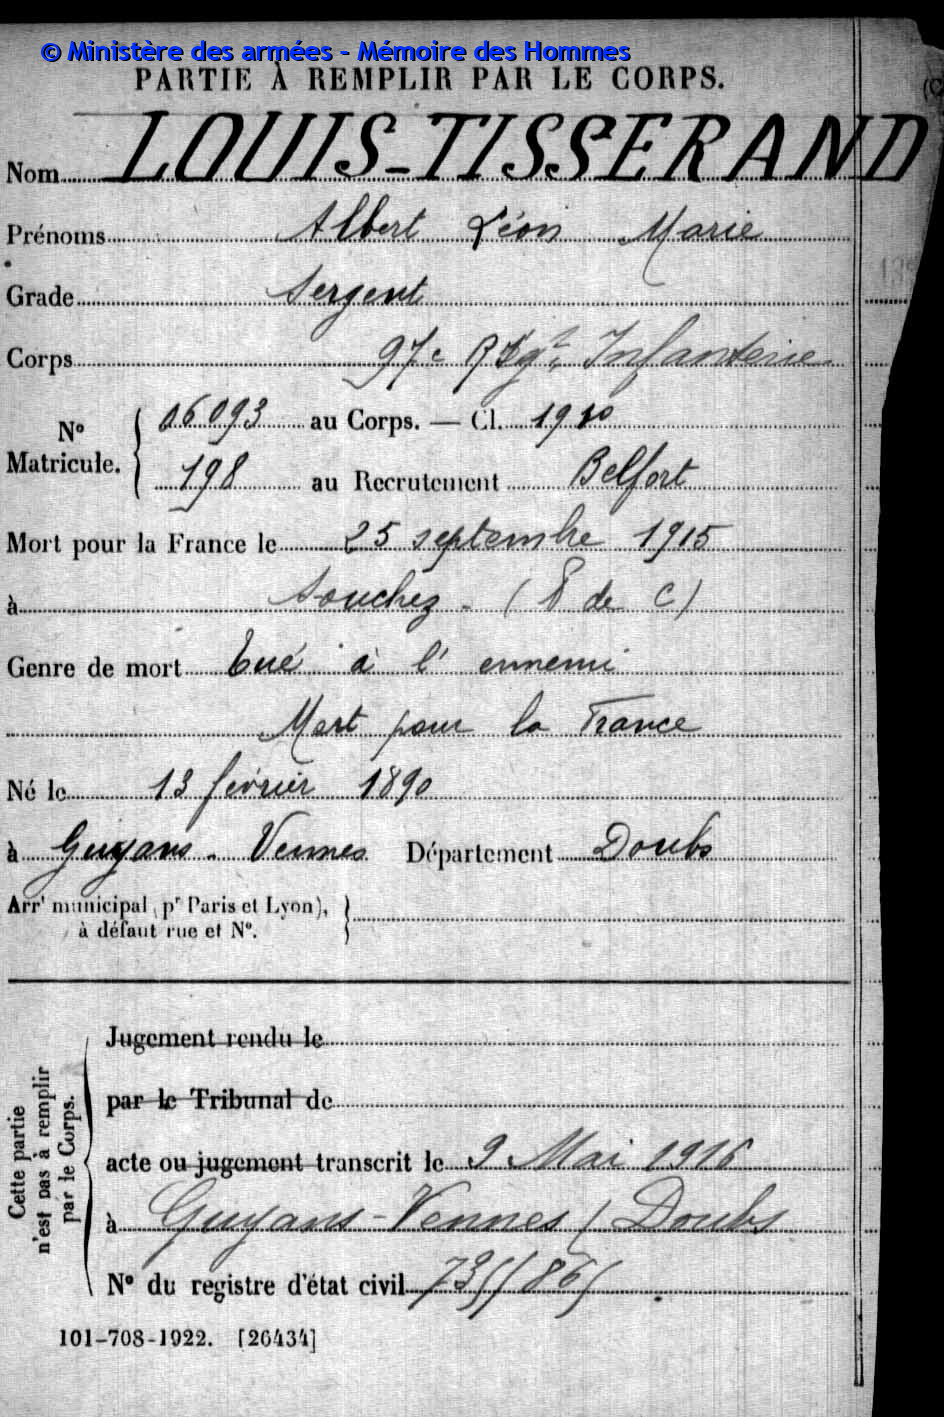 © Ministère des armées - Mémoire des Hommes
PARTIE À REMPLIR PAR LE CORPS.
Nom LOUIS-TISSERAND
Prénoms Albert Léon Marie
Grade Sergent
Corps 97e Rgt Infanterie
N° Matricule. 06093 au Corps. — Cl. 1910
198 au Recrutement Belfort
Mort pour la France le 25 septembre 1915
à Souchez - (P de C)
Genre de mort Tué à l'ennemi
Mort pour la France
Né le 13 février 1890
à Guyans-Vennes Département Doubs
Arrt municipal (pr Paris et Lyon),
à défaut rue et N°.
Cette partie n'est pas à remplir par le Corps.
Jugement rendu le
par le Tribunal de
acte ou jugement transcrit le 9 Mai 1916
à Guyans-Vennes (Doubs
N° du registre d'état civil
101-708-1922. [26434]